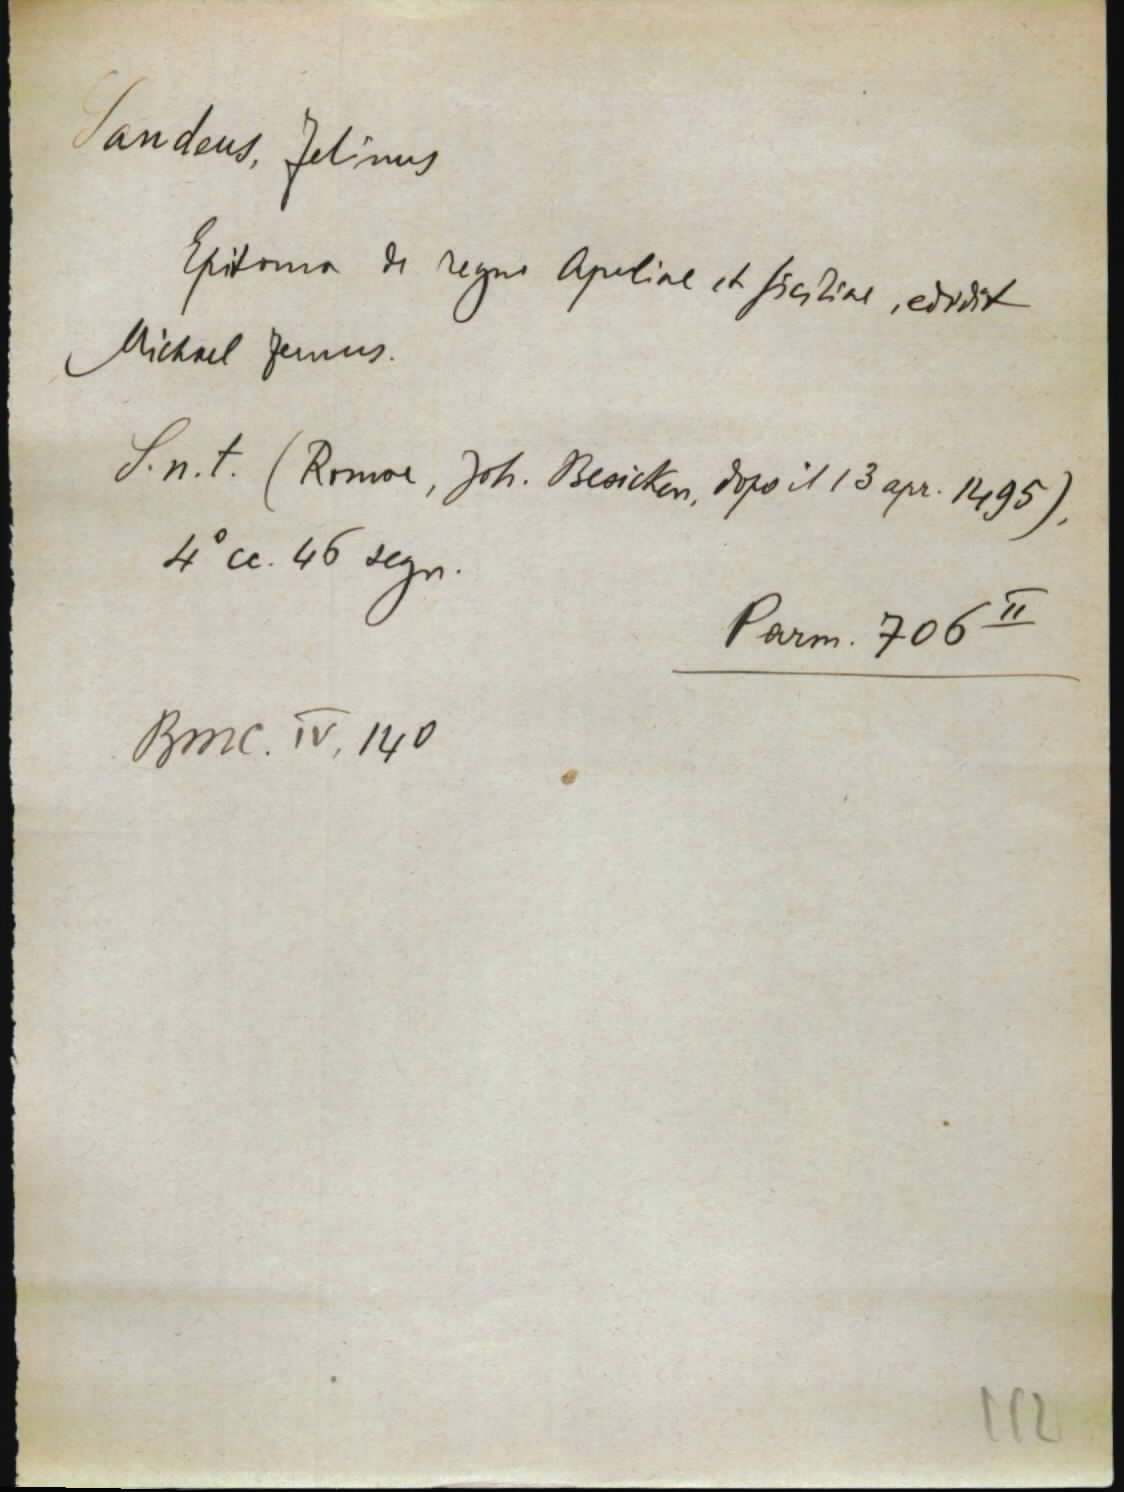 Sandeus, Felinus
Epitoma de regno Apuliae et Siciliae, edidit
Michael Fernus.
S.n.t. (Romae, Joh. Besicken, dopo il 13 apr. 1495),
4° cc. 46 segn.
Parm. 706 II
BMC. IV, 140
112